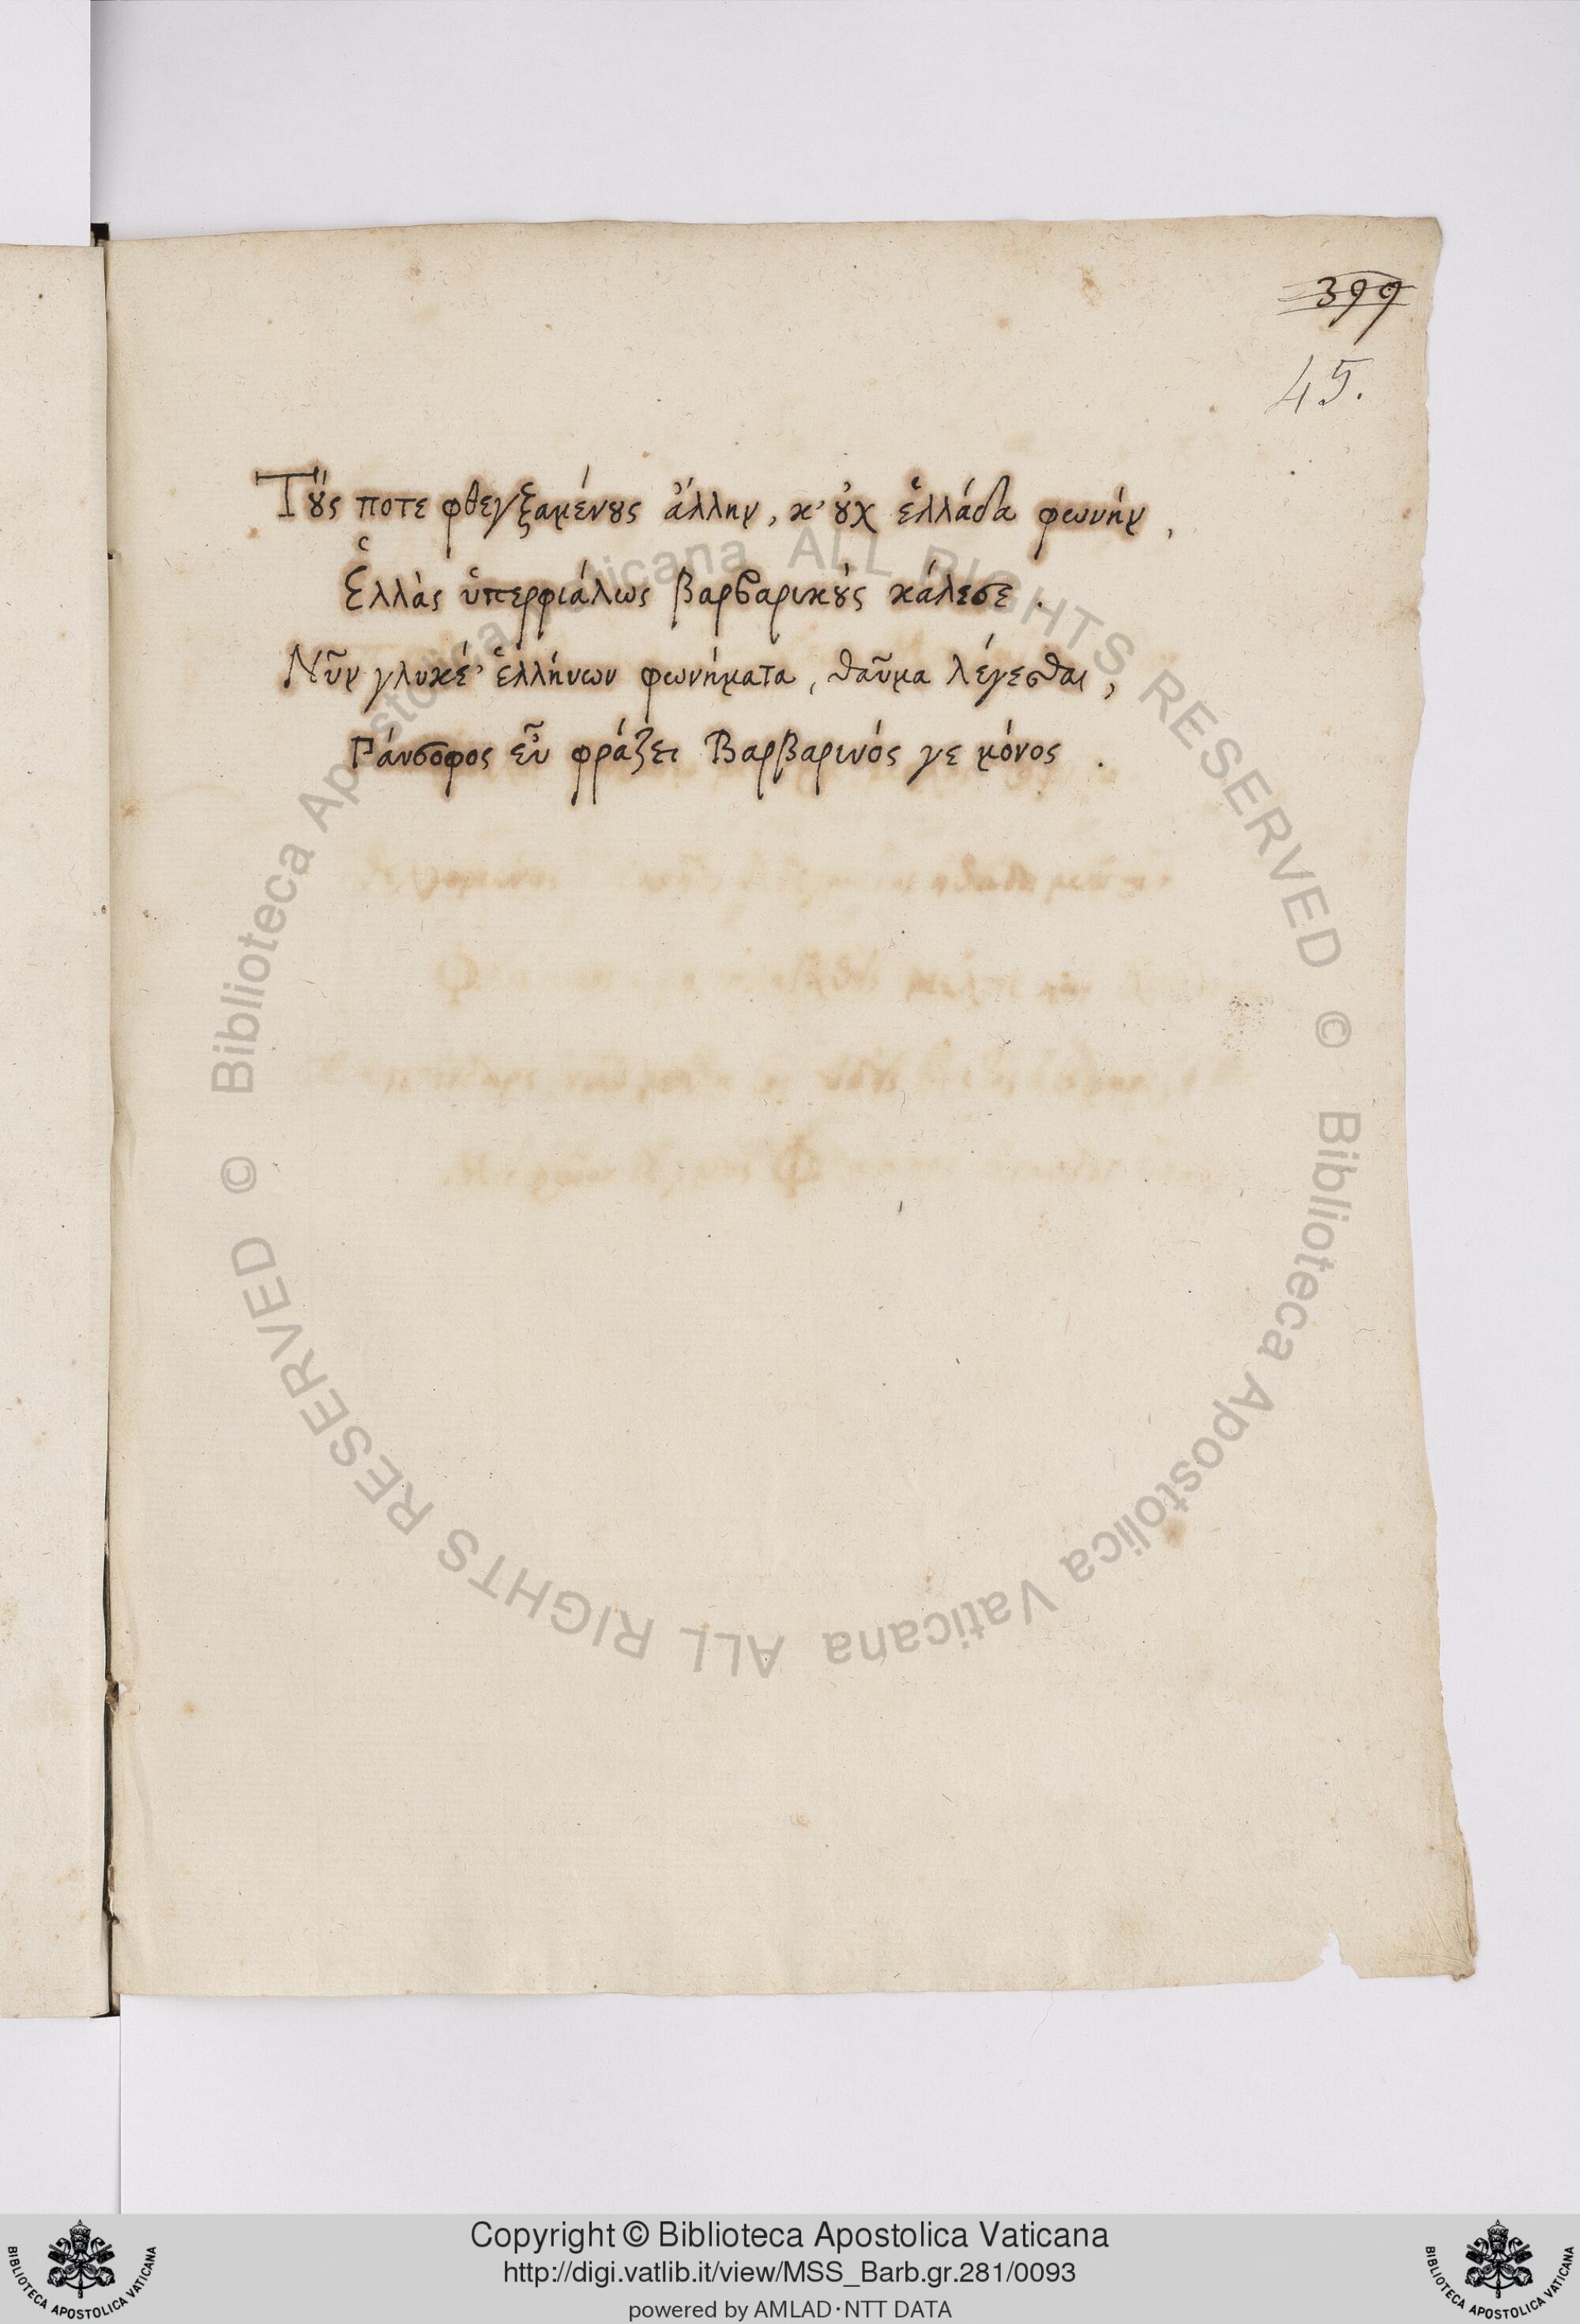 399
45.
Τȣ́ς ποτε φθεγξαμένȣς ἄλλην, κ' ȣ̓χ ἑλλάδα φωνήν,
Ἑλλὰς ὑπερφιάλως βαρβαρικȣ̀ς κάλεσε.
Νῦν γλυκέ' ἑλλήνων φωνήματα, θαῦμα λέγεσθαι,
Πάνσοφος εὖ φράζει Βαρβαρινός γε μόνος.
© Biblioteca Apostolica Vaticana ALL RIGHTS RESERVED
© Biblioteca Apostolica Vaticana ALL RIGHTS RESERVED
Copyright © Biblioteca Apostolica Vaticana
http://digi.vatlib.it/view/MSS_Barb.gr.281/0093
powered by AMLAD·NTT DATA
BIBLIOTECA APOSTOLICA VATICANA
BIBLIOTECA APOSTOLICA VATICANA